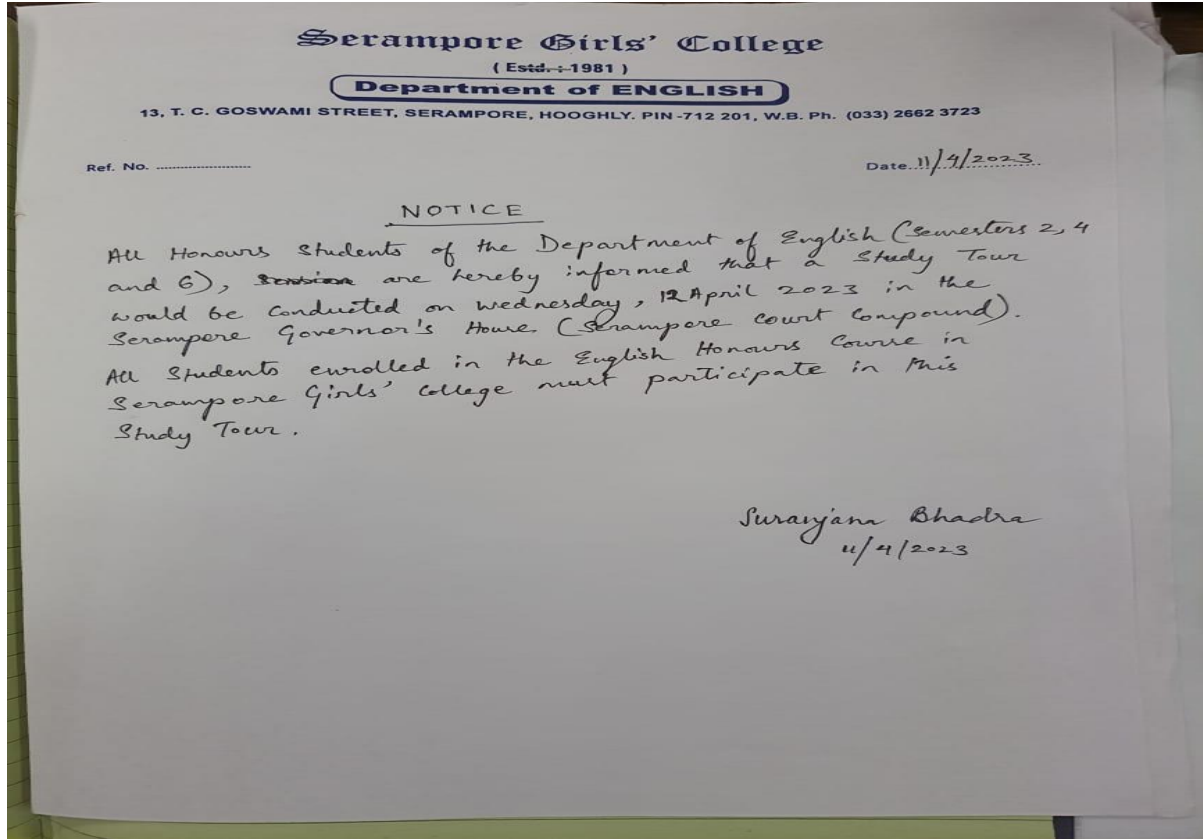 Serampore Girls' College
( Estd. : 1981 )
Department of ENGLISH
13, T. C. GOSWAMI STREET, SERAMPORE, HOOGHLY. PIN-712 201, W.B. Ph. (033) 2662 3723
Ref. No. ........................ Date..11/4/2023..
NOTICE
All Honours Students of the Department of English (Semesters 2, 4
and 6), are hereby informed that a Study Tour
would be conducted on Wednesday, 12 April 2023 in the
Serampore Governor's House (Serampore Court Compound).
All Students enrolled in the English Honours Course in
Serampore Girls' College must participate in this
Study Tour.
Suranjana Bhadra
11/4/2023